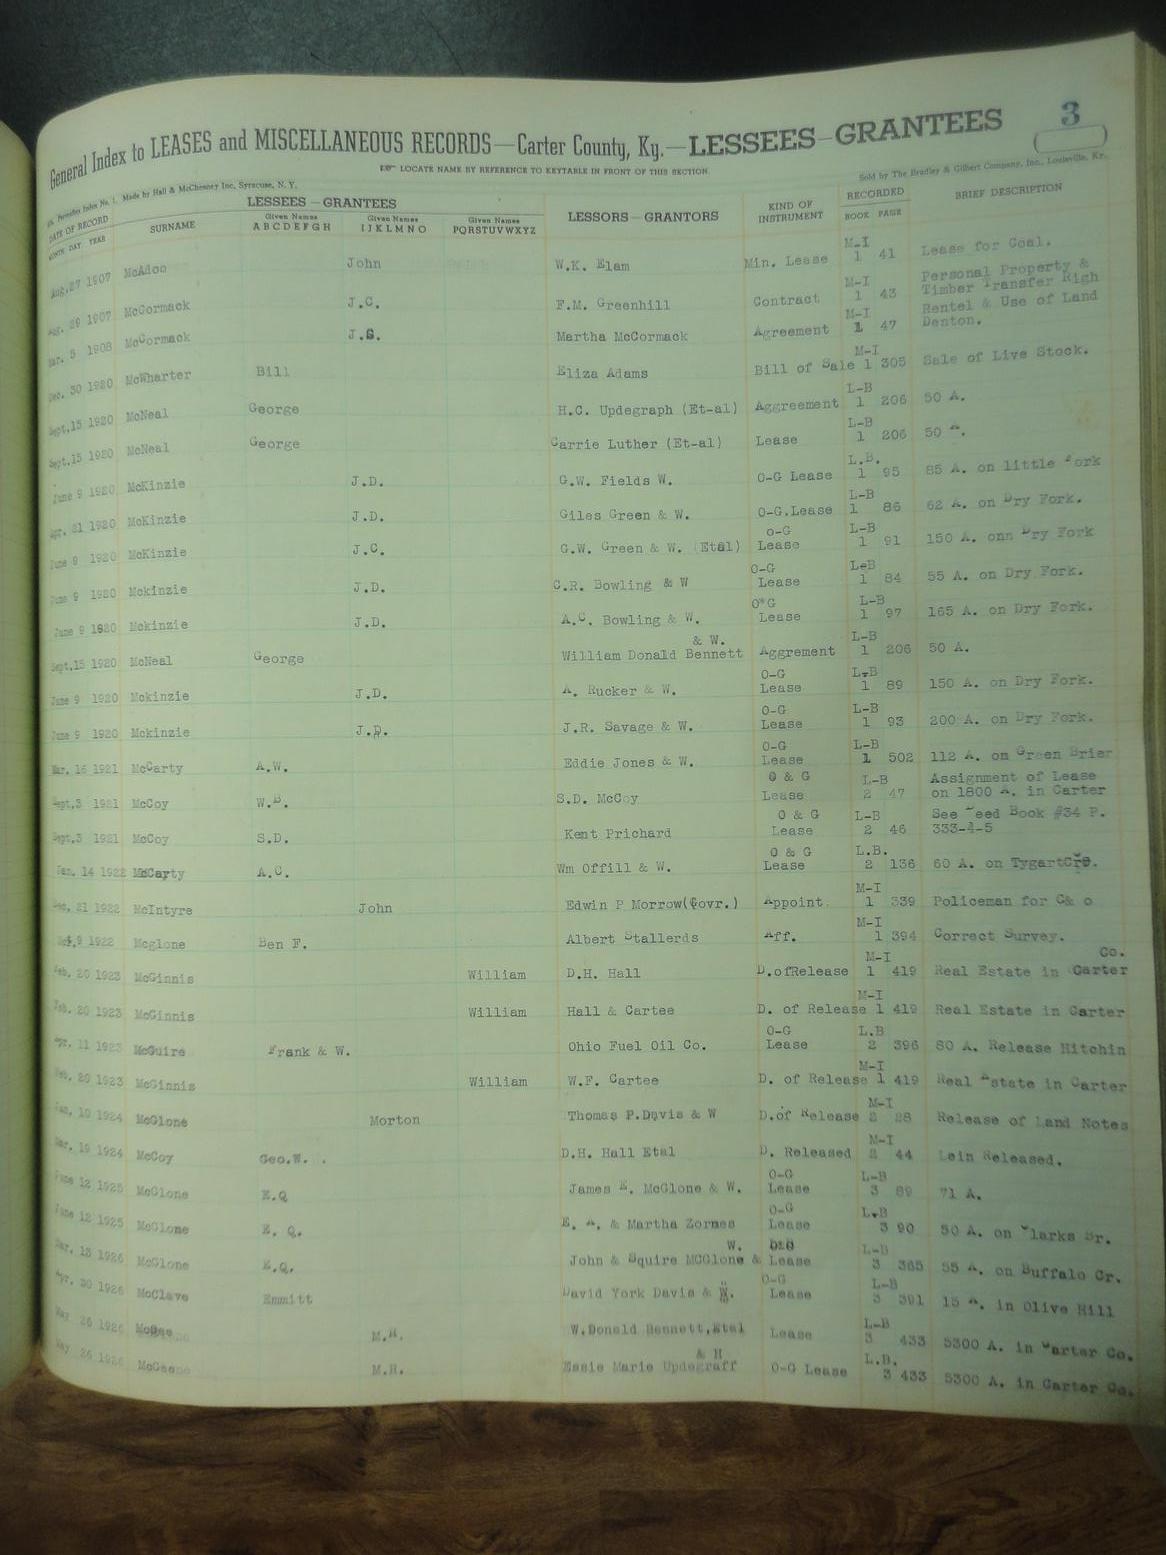 General Index to LEASES and MISCELLANEOUS RECORDS—Carter County, Ky.—LESSEES—GRANTEES 3
LOCATE NAME BY REFERENCE TO KEYTABLE IN FRONT OF THIS SECTION.
Made by Hall & McChesney Inc. Syracuse, N. Y. Sold by The Bradley & Gilbert Company, Inc., Louisville, Ky.
DATE OF RECORD LESSEES—GRANTEES LESSORS—GRANTORS KIND OF INSTRUMENT RECORDED BRIEF DESCRIPTION
MONTH DAY YEAR SURNAME Given Names ABCDEFGH Given Names IJKLMNO Given Names PQRSTUVWXYZ BOOK PAGE
Aug.27 1907 McAdoo John W.K. Elam Min. Lease M-I 1 41 Lease for Coal.
Aug. 29 1907 McCormack J.C. F.M. Greenhill Contract M-I 1 43 Personal Property & Timber Transfer Righ
Mar. 5 1908 McCormack J.C. Martha McCormack Agreement M-I 1 47 Rentel & Use of Land Denton.
Dec. 30 1920 McWharter Bill Eliza Adams Bill of Sale M-I 1 305 Sale of Live Stock.
Sept.15 1920 McNeal George H.C. Updegraph (Et-al) Aggreement L-B 1 206 50 A.
Sept.15 1920 McNeal George Carrie Luther (Et-al) Lease L-B 1 206 50 A.
June 9 1920 McKinzie J.D. G.W. Fields W. O-G Lease L.B. 1 95 85 A. on little Fork
Apr. 21 1920 McKinzie J.D. Giles Green & W. O-G.Lease L-B 1 86 62 A. on Dry Fork.
June 9 1920 McKinzie J.C. G.W. Green & W. (Etal) O-G Lease L-B 1 91 150 A. onn Dry Fork
June 9 1920 Mckinzie J.D. C.R. Bowling & W O-G Lease L-B 1 84 55 A. on Dry Fork.
June 9 1920 Mckinzie J.D. A.C. Bowling & W. O*G Lease L-B 1 97 165 A. on Dry Fork.
Sept.15 1920 McNeal George William Donald Bennett & W. Aggrement L-B 1 206 50 A.
June 9 1920 Mckinzie J.D. A. Rucker & W. O-G Lease L-B 1 89 150 A. on Dry Fork.
June 9 1920 Mckinzie J.D. J.R. Savage & W. O-G Lease L-B 1 93 200 A. on Dry Fork.
Mar. 16 1921 McCarty A.W. Eddie Jones & W. O-G Lease L-B 1 502 112 A. on Green Brier
Sept.3 1921 McCoy W.B. S.D. McCoy O & G Lease L-B 2 47 Assignment of Lease on 1800 A. in Carter
Sept.3 1921 McCoy S.D. Kent Prichard O & G Lease L-B 2 46 See Deed Book #34 P. 333-4-5
Jan. 14 1922 McCarty A.C. Wm Offill & W. O & G Lease L.B. 2 136 60 A. on Tygart
Dec. 21 1922 McIntyre John Edwin P Morrow(Govr.) Appoint. M-I 1 339 Policeman for C& o
9 1922 Mcglone Ben F. Albert Stallerds Aff. M-I 1 394 Correct Survey.
Feb. 20 1923 McGinnis William D.H. Hall D.ofRelease M-I 1 419 Real Estate in Carter Co.
Feb. 20 1923 McGinnis William Hall & Cartee D. of Release M-I 1 419 Real Estate in Carter
Apr. 11 1923 McGuire Frank & W. Ohio Fuel Oil Co. O-G Lease L.B 2 396 80 A. Release Hitchin
Feb. 20 1923 McGinnis William W.F. Cartee D. of Release M-I 1 419 Real Estate in Carter
Jan. 10 1924 McGlone Morton Thomas P.Davis & W D.of Release M-I 2 28 Release of Land Notes
Mar. 19 1924 McCoy Geo.W. D.H. Hall Etal D. Released M-I 2 44 Lein Released.
June 12 1925 McGlone E.Q James E. McGlone & W. O-G Lease L-B 3 89 71 A.
June 12 1925 McGlone E. Q. E. A. & Martha Zornes O-G Lease L-B 3 90 50 A. on Clarks Br.
Mar. 13 1926 McGlone E.Q. John & Squire MCGlone & W. Lease L-B 3 365 55 A. on Buffalo Cr.
Apr. 30 1926 McClave Emmitt David York Davis & W. O-G Lease L-B 3 391 15 A. in Olive Hill
May 26 1926 M.H. W.Donald Bennett,Etal Lease L-B 3 433 5300 A. in Carter Co.
May 26 1926 M.H. Essie Marie Updegraff & H O-G Lease L.B. 3 433 5300 A. in Carter Co.